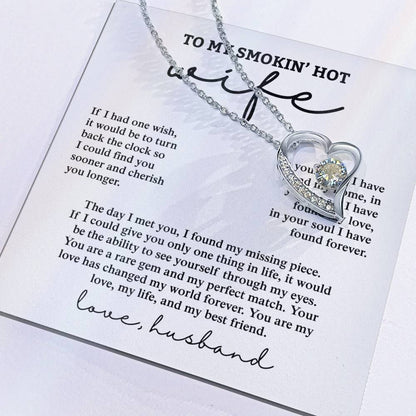 TO MY SMOKIN' HOT
wife
If I had one wish,
it would be to turn
back the clock so
I could find you
sooner and cherish
you longer.
you I have
home, in
love,
in your soul I have
found forever.
The day I met you, I found my missing piece.
If I could give you only one thing in life, it would
be the ability to see yourself through my eyes.
You are a rare gem and my perfect match. Your
love has changed my world forever. You are my
love, my life, and my best friend.
love, husband